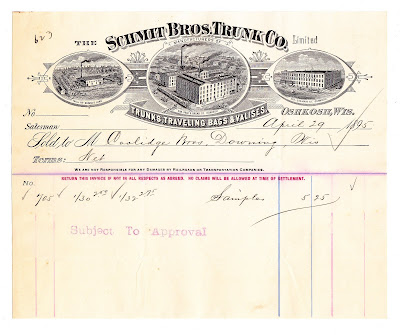 623
THE SCHMIT BROS. TRUNK CO. Limited
MANUFACTURERS OF
TRUNKS, TRAVELING BAGS & VALISES.
OSHKOSH, WIS.
No
April 29 1895
Salesman
Sold to M Coolidge Bros. Downing Wis
Terms: Net
WE ARE NOT RESPONSIBLE FOR ANY DAMAGES BY RAILROADS OR TRANSPORTATION COMPANIES.
No. RETURN THIS INVOICE IF NOT IN ALL RESPECTS AS AGREED. NO CLAIMS WILL BE ALLOWED AT TIME OF SETTLEMENT.
1 705 1/30 1/32 Samples 5 25
Subject To Approval